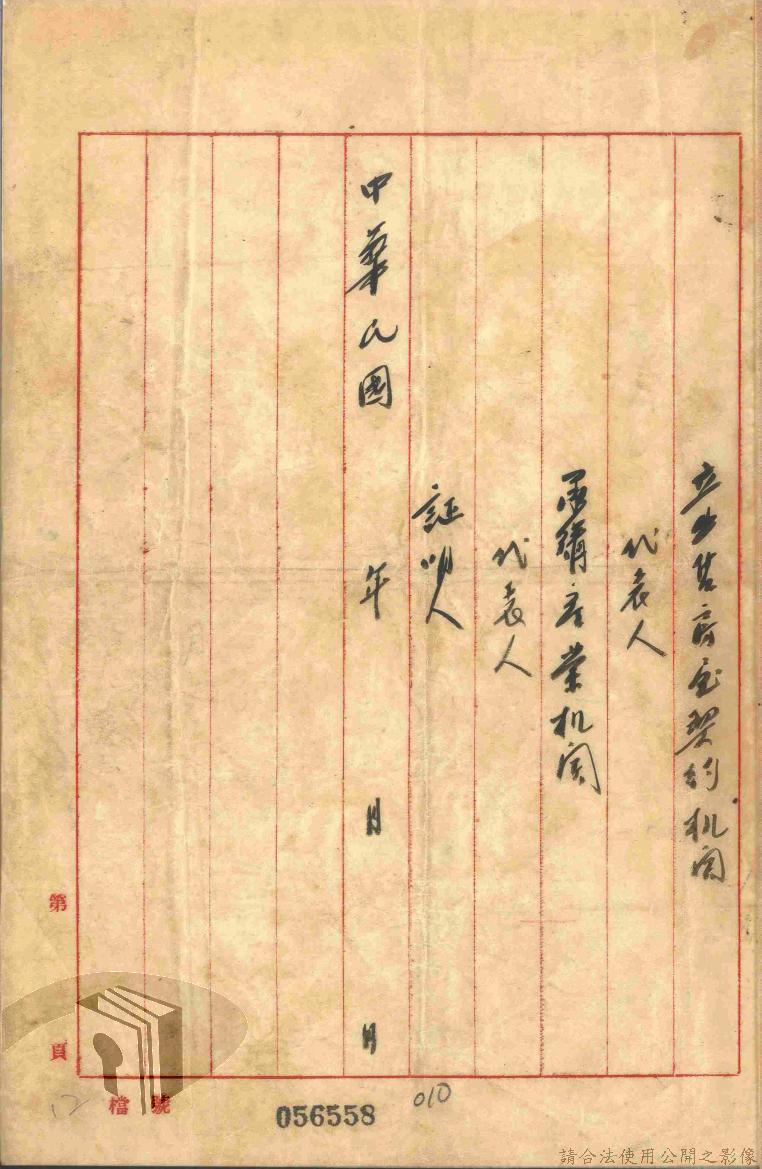 立出售房屋契約机関
代表人
承購產業机関
代表人
証明人
中華民國 年 月 日
第 頁
檔 號
056558
010
12
請合法使用公開之影像